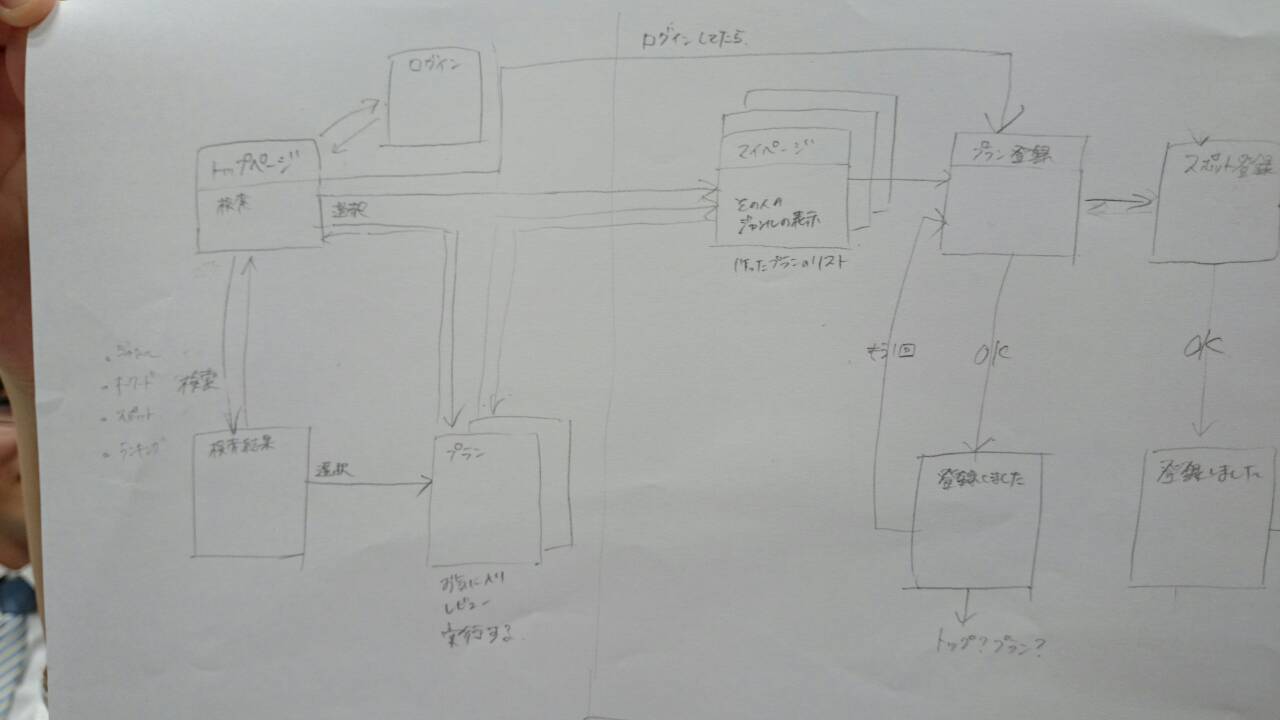 ログインしてたら
ログイン
トップページ
検索
選択
マイページ
その人の
ジャンルの表示
作ったプランのリスト
プラン登録
スポット登録
もう1回
OK
OK
・ジャンル
・キーワード
・スポット
・ランキング
検索
検索結果
選択
プラン
お気に入り
レビュー
実行する
登録しました
登録しました
トップ?プラン?